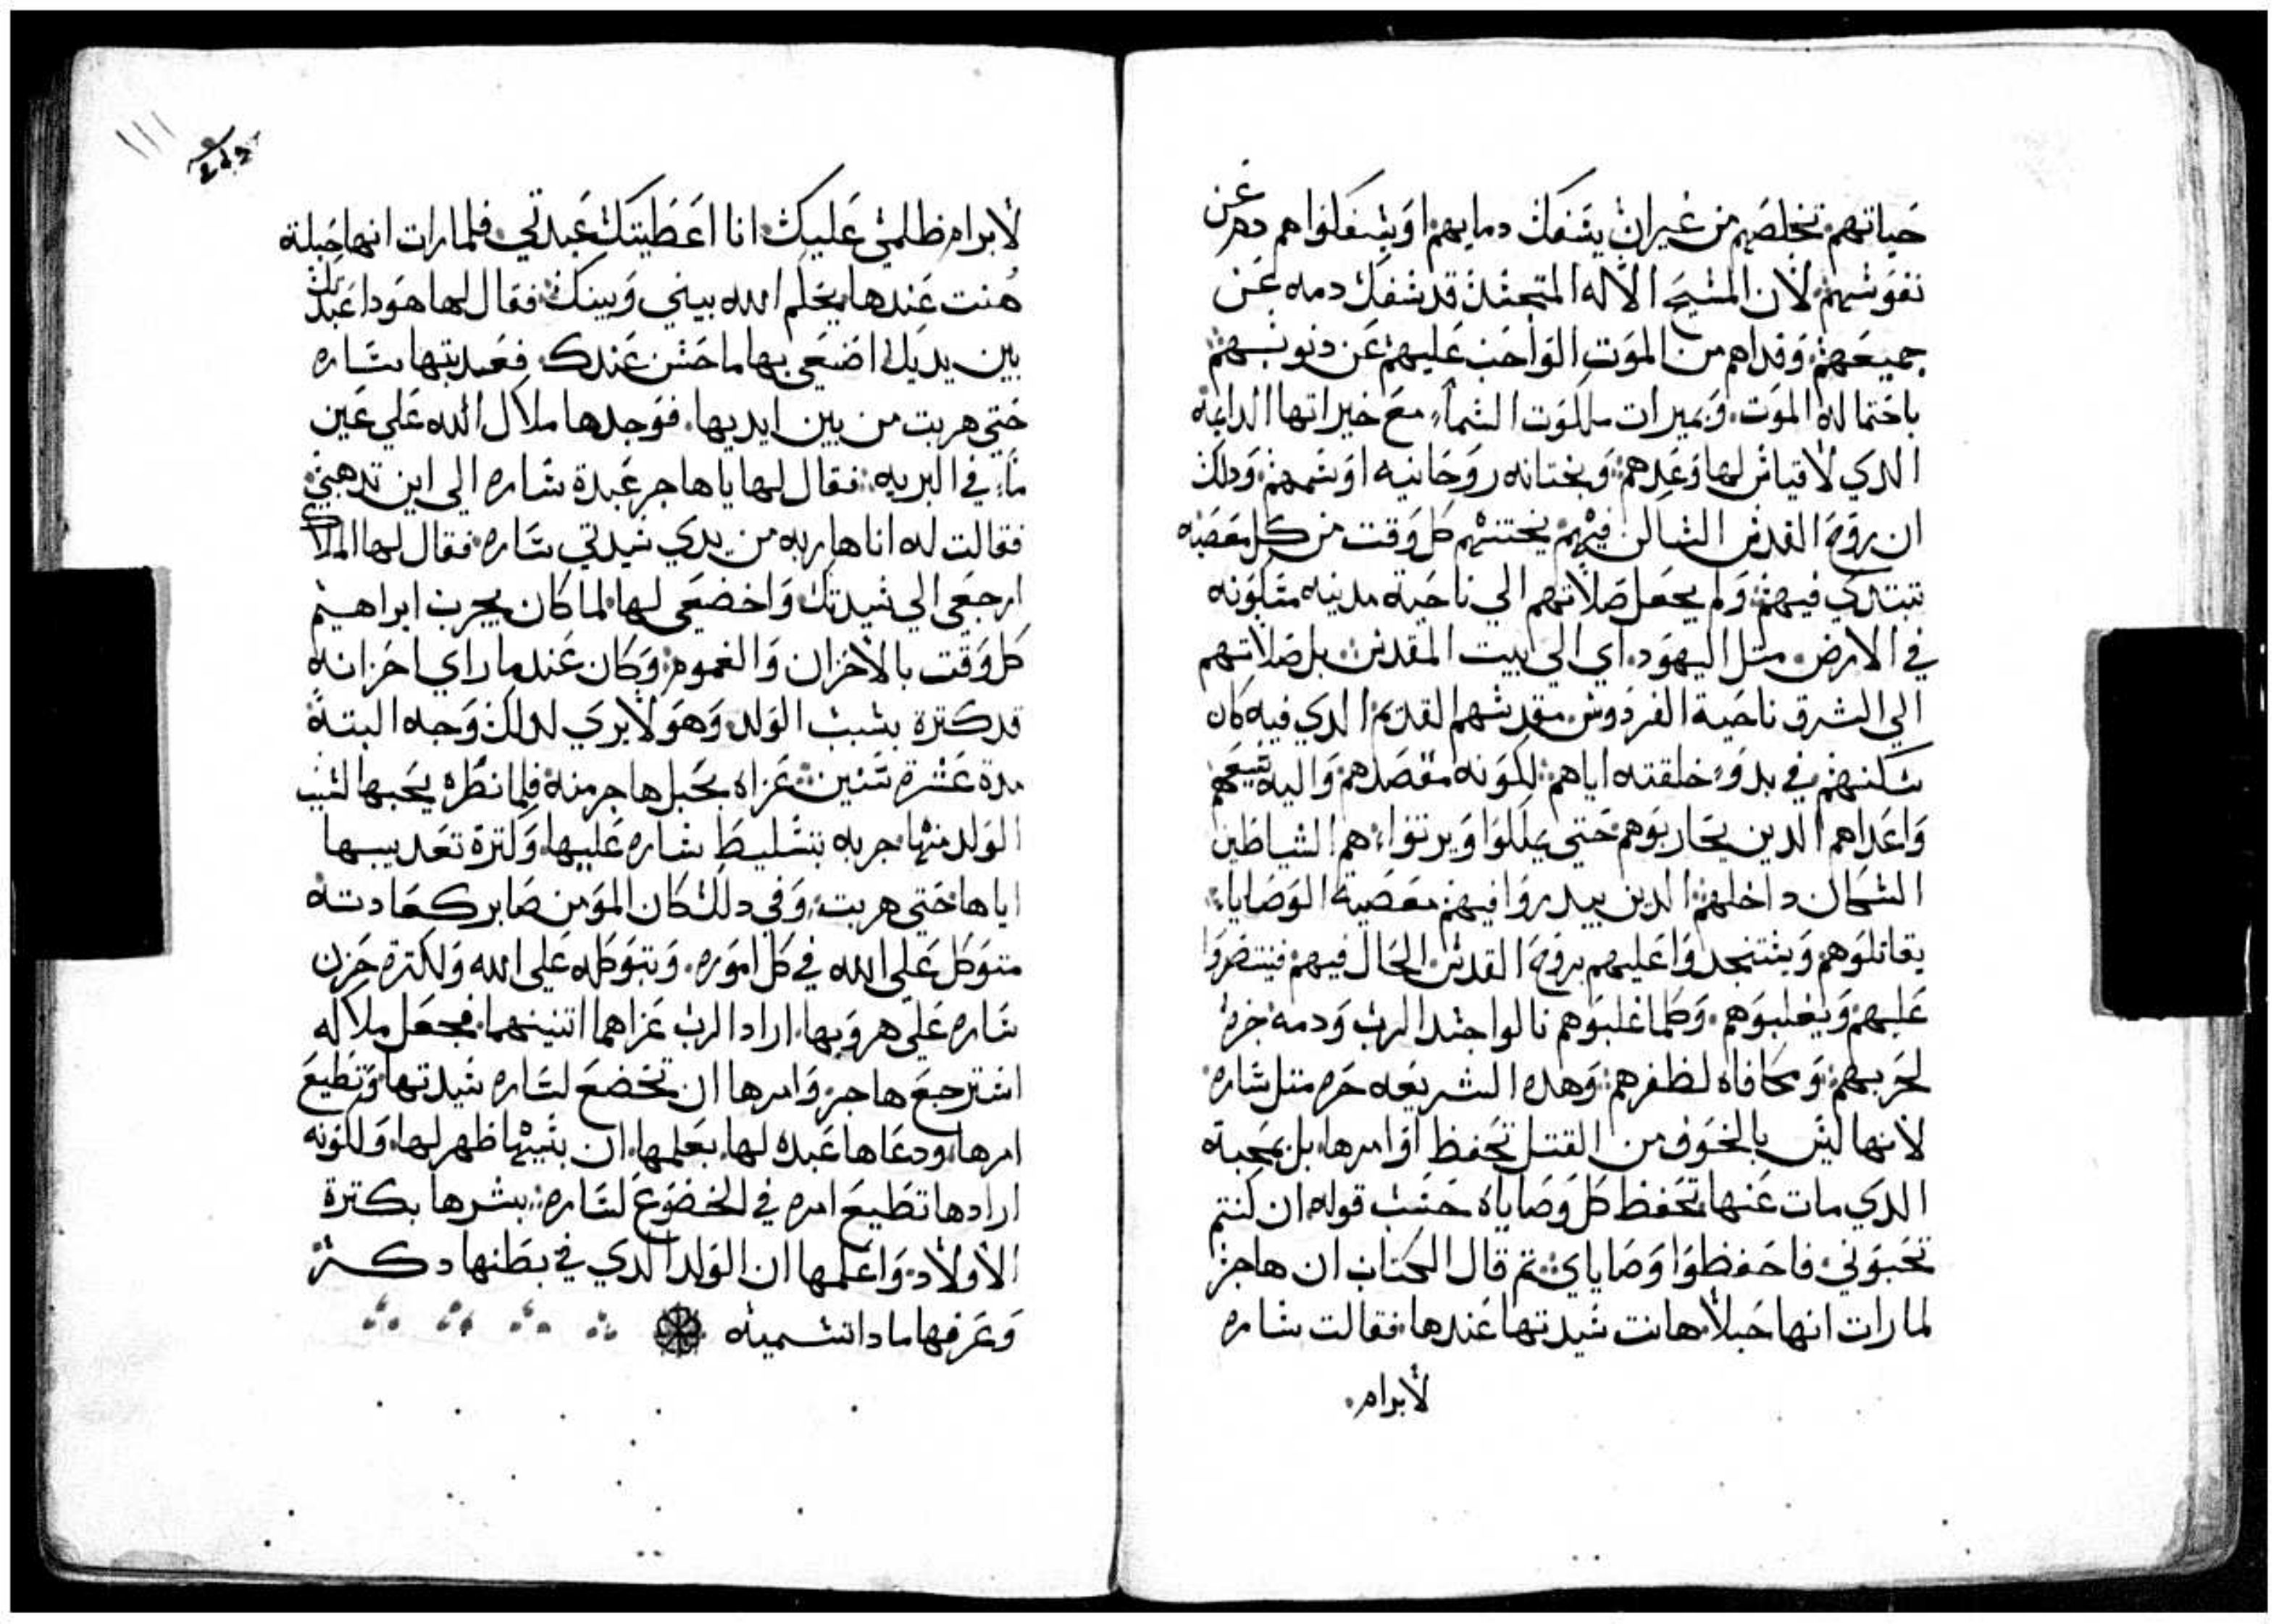 حياتهم تخلصهم من غير ان يشفك دمايهم او يشفكوا هم دمهم عن
نفوشهم لان المشيح الاله المتجشد قد شفك دمه عن
جميعهم وفداهم من الموت الواجب عليهم عن دنوبهم
باحتماله الموت وبميرات ملكوت الشماء مع خيراتها الدايمه
الدي لاقياش لها وعدهم وبختانه روحانيه اوشمهم ودلك
ان روح القدش الشاكن فيهم يختنهم كل وقت من كل معصيه
تبتدي فيهم ولم يجعل صلاتهم الي ناحية مدينه مشكونه
في الارض متل اليهود اي الي بيت المقدش بل صلاتهم
الي الشرق ناحية الفردوش مقدشهم القديم الدي فيه كان
شكنهم في بدو خلقته اياهم لكونه مقصدهم واليه شعيهم
واعداهم الدين يحاربوهم حتي يملكوا ويرتوا هم الشياطين
الشكان داخلهم الدين يبدروا فيهم معصية الوصايا
يقاتلوهم ويشتنجدوا عليهم بروح القدش الحال فيهم فينتصروا
عليهم ويغلبوهم وكلما غلبوهم نالوا جشد الرب ودمه جزا
لحربهم ومكافاه لظفرهم وهده الشريعه حره متل شاره
لانها ليش بالخوف من القتل تحفظ اوامرها بل بمحبة
الدي مات عنها تحفظ كل وصاياه حشب قوله ان كنتم
تحبوني فاحفظوا وصاياي تم قال الكتاب ان هاجر
لما رات انها حبلا هانت شيدتها عندها فقالت شاره
لابرام
لابرام ظلمي عليك انا اعطيتك عبدتي فلما رات انها حبلة
هنت عندها يحكم الله بيني وبينك فقال لها هودا عبدتك
بين يديك اصنعي بها ما حشن عندك فعدبتها شاره
حتي هربت من بين ايديها فوجدها ملاك الله علي عين
ماء في البريه فقال لها يا هاجر عبدة شاره الي اين تدهبي
فقالت له انا هاربه من يدي شيدتي شاره فقال لها الملاك
ارجعي الي شيدتك واخضعي لها لما كان يجرب ابراهيم
كل وقت بالاحزان والغموم وكان عند ما راي احزانه
قد كترة بشبب الولد وهو لا يري لدلك وجه البتة
مدة عشرة شنين عزاه بحبل هاجر منه فلما نظره يحبها لشبب
الولد منها جربه بتشليط شاره عليها ولترة تعديبها
اياها حتي هربت وفي دلك كان المومن صابر كعادته
متوكل علي الله في كل اموره وبتوكله علي الله ولكترة حزن
شاره علي هروبها اراد الرب عزاهما اتنينهما فجعل ملاكه
اشترجع هاجر وامرها ان تخضع لشاره شيدتها وتطيع
امرها ودعاها عبده لها بعلمها ان بشببها ظهر لها ولكونه
ارادها تطيع امره في الخضوع لشاره بشرها بكترة
الاولاد واعلمها ان الولد الدي في بطنها دكر
وعرفها مادا تشميه